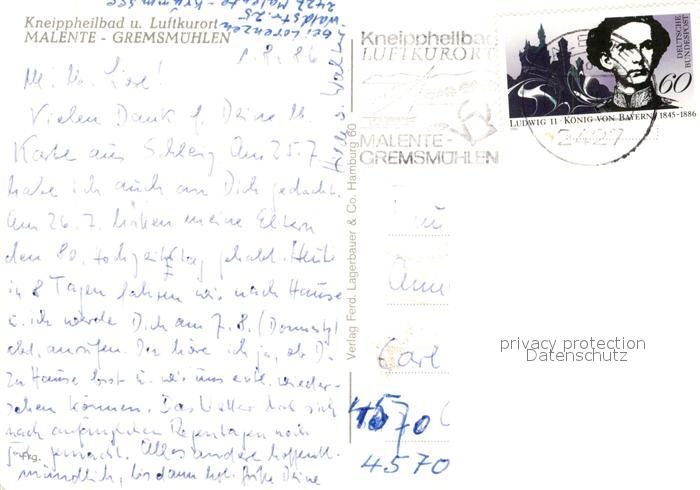 Kneippheilbad u. Luftkurort
MALENTE - GREMSMÜHLEN
bei Lorenzen
Waldstr. 25
2427 Malente - Krummsee
1.8.86
M. lb. Lise!
Vielen Dank f. Deine lb.
Karte aus Schleswig. Am 25.7.
habe ich auch an Dich gedacht.
Am 26.7. hätten meine Eltern
den 80. Hochzeitstag gehabt. Heute
in 8 Tagen fahren wir nach Hause
u. ich werde Dich am 7.8. (Donnerstg)
abd. anrufen. Da höre ich ja, ob Du
zu Hause bist u. wir uns evtl. wieder-
sehen können. Das Wetter hat sich
nach anfänglichen Regentagen noch
gemacht. Alles andere hoffentl.
mündlich, bis dann hzl. Grüße Deine
Hilde u.
Pkg.
Verlag Ferd. Lagerbauer & Co. Hamburg 60
Kneippheilbad
LUFTKURORT
MALENTE-
GREMSMÜHLEN
2427
DEUTSCHE
BUNDESPOST
60
LUDWIG II · KÖNIG VON BAYERN 1845-1886
Carl
4570
4570
privacy protection
Datenschutz